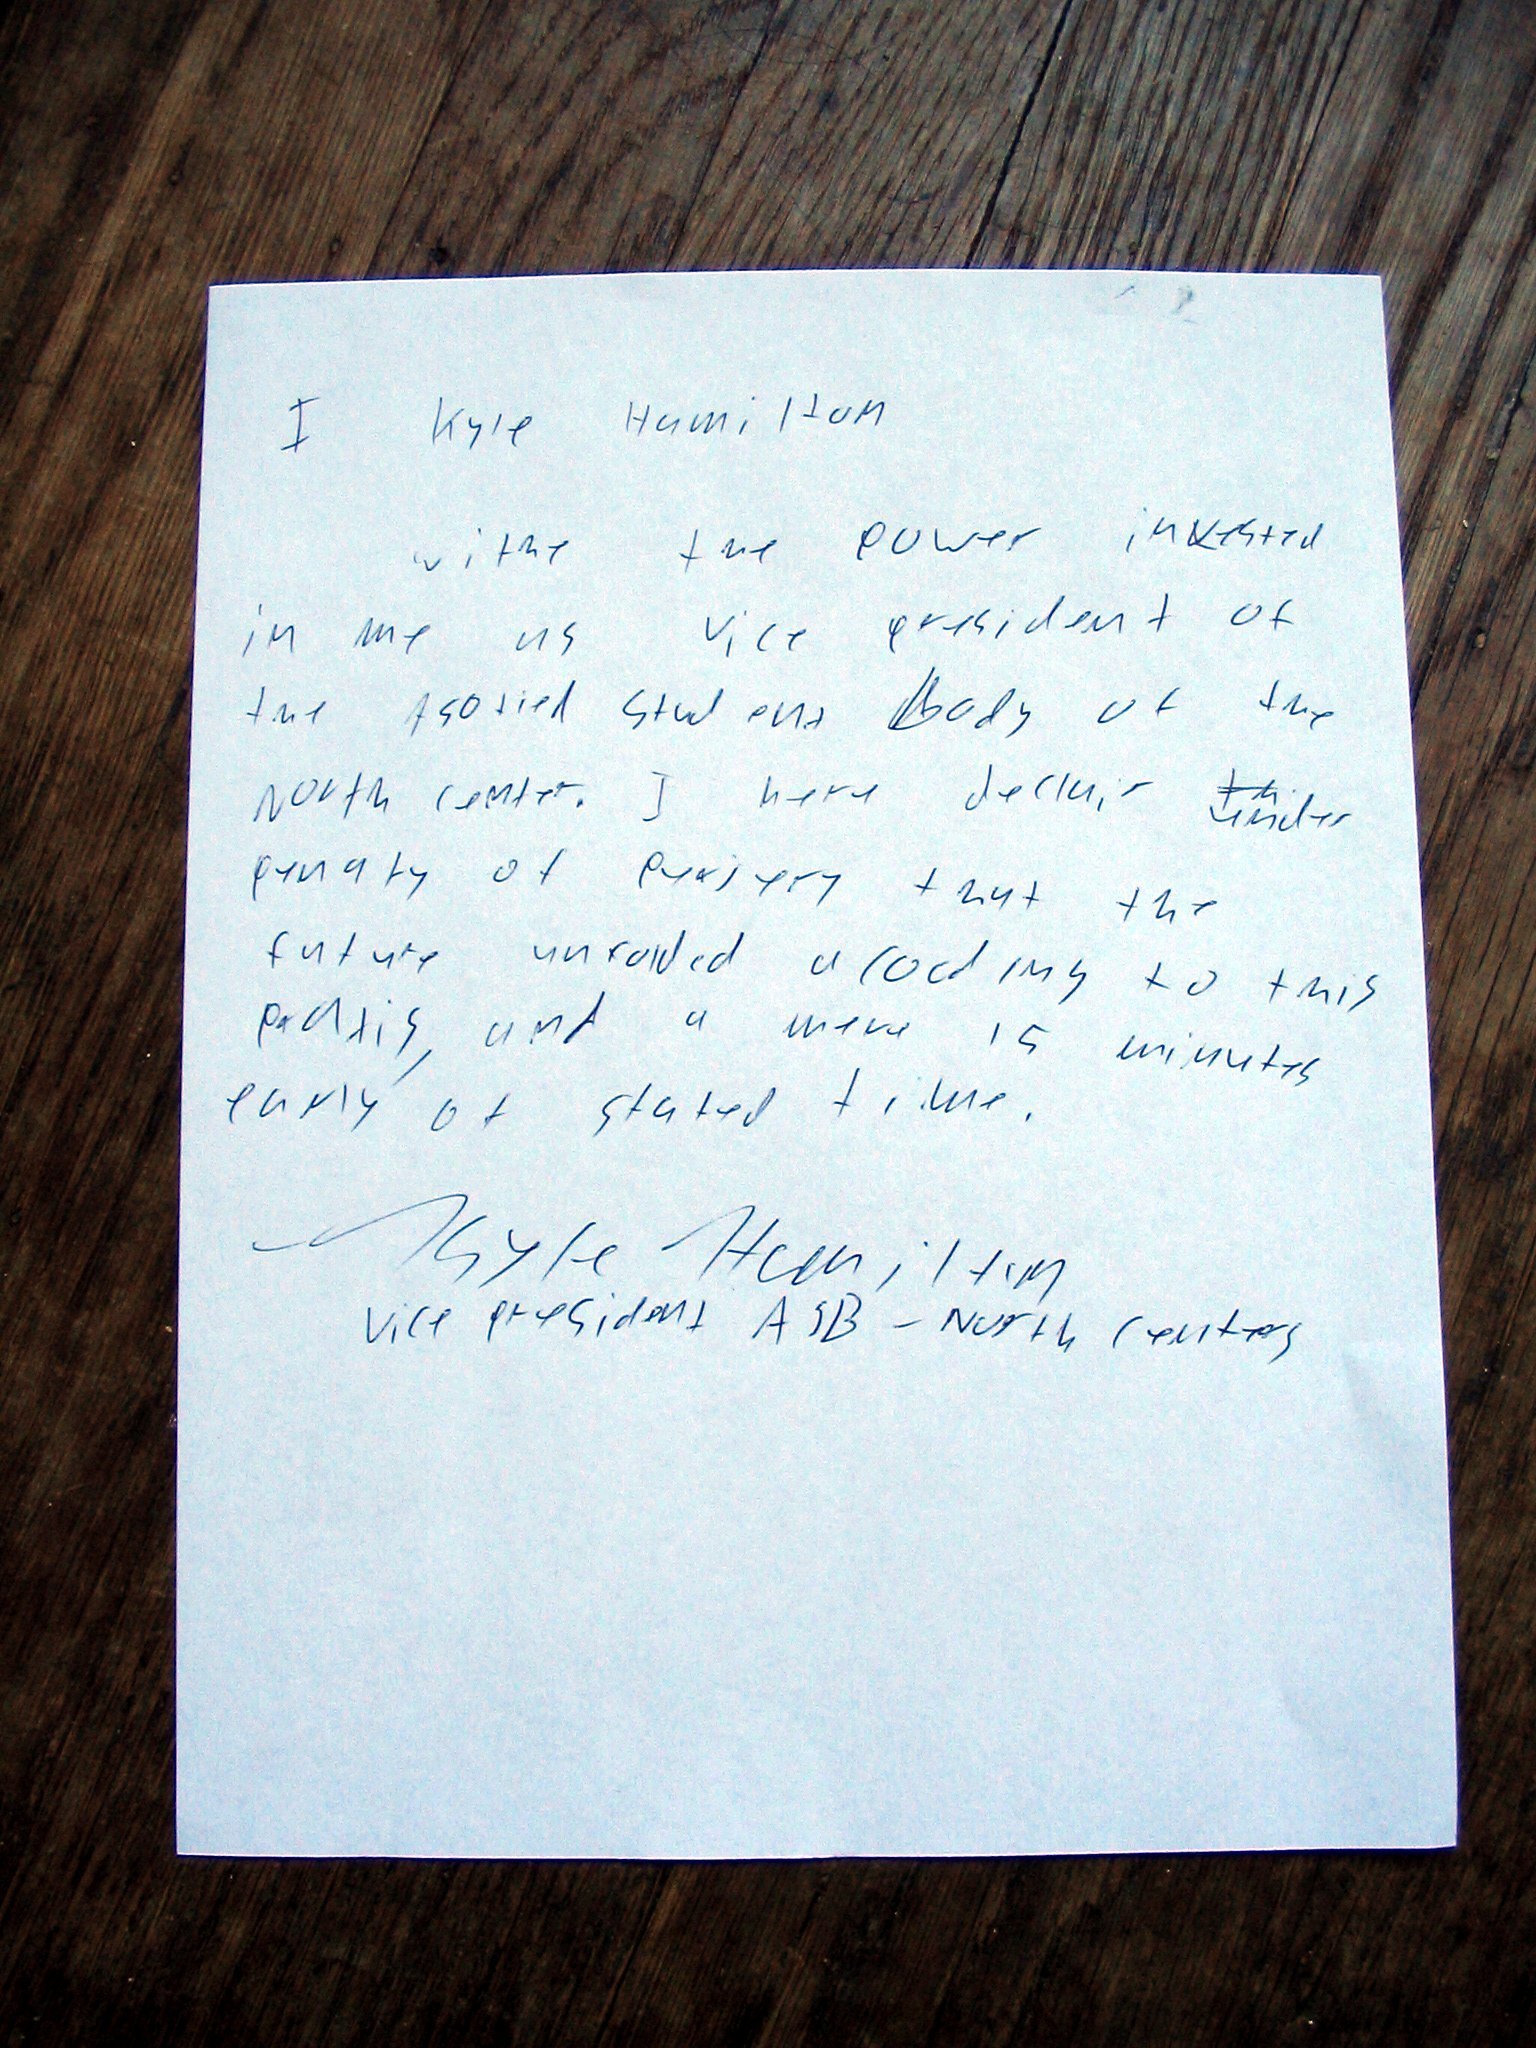 I Kyle Hamilton
withe the power invested
in me as vice president of
the Asotied student Body of the
North center. I here declair under
penalty of perjery that the
future unfolded acocding to this
and a mere 15 minutes
early of stated time.
Kyle Hamilton
vice president ASB - North centers